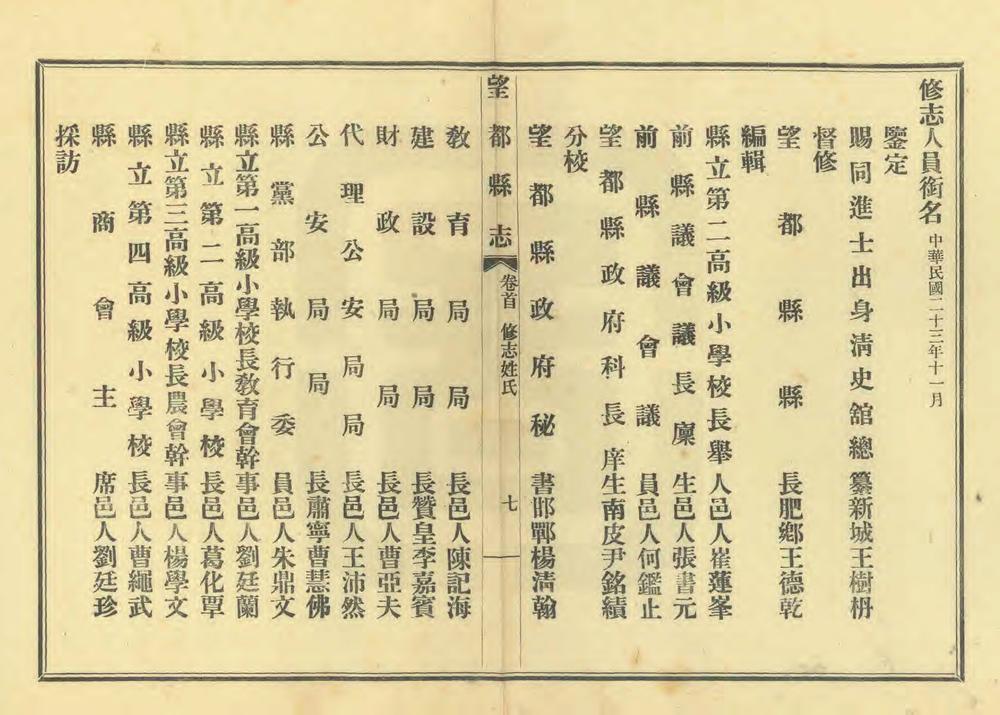 修志人員銜名 中華民國二十三年十一月
鑒定
賜同進士出身清史舘總纂新城王樹枏
督修
望都縣縣長肥鄉王德乾
編輯
縣立第二高級小學校長舉人邑人崔蓮峯
前縣議會議長廩生邑人張書元
前縣議會議員邑人何鑑止
望都縣政府科長庠生南皮尹銘績
分校
望都縣政府秘書邯鄲楊清翰
望都縣志 卷首 修志姓氏 七
教育局局長邑人陳記海
建設局局長贊皇李嘉賓
財政局局長邑人曹亞夫
代理公安局局長邑人王沛然
公安局局長肅寧曹慧佛
縣黨部執行委員邑人朱鼎文
縣立第一高級小學校長教育會幹事邑人劉廷蘭
縣立第二高級小學校長邑人葛化覃
縣立第三高級小學校長農會幹事邑人楊學文
縣立第四高級小學校長邑人曹繩武
縣商會主席邑人劉廷珍
採訪